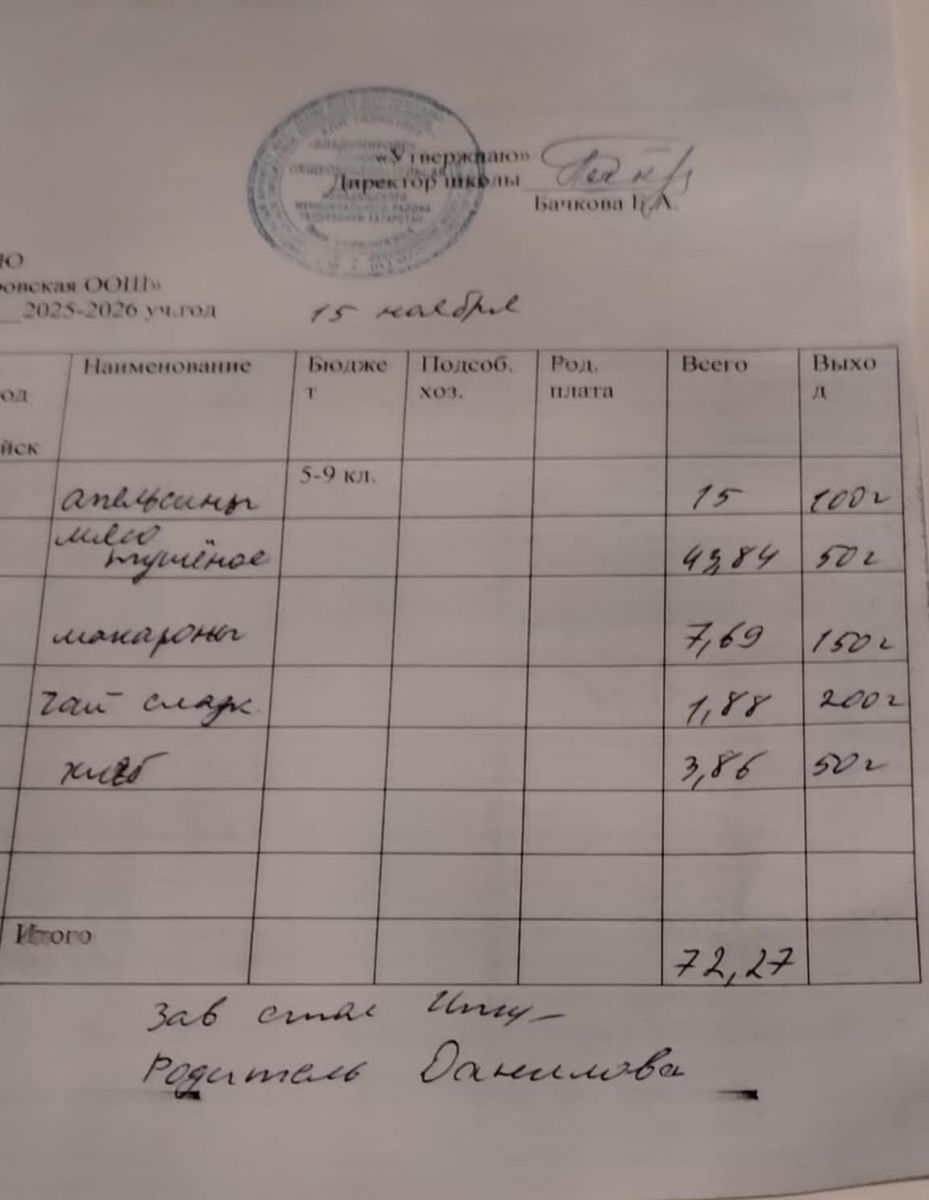 «Утверждаю»
Директор школы
Бачкова
Ю
ровская ООШ»
2025-2026 уч.год 15 ноября
од йск Наименование Бюджет Подсоб. хоз. Род. плата Всего Выход
5-9 кл.
апельсины 15 100г
мясо тушёное 43,84 50г
макароны 7,69 150г
чай сладк. 1,88 200г
хлеб 3,86 50г
Итого 72,27
Зав стол
Родитель Данилова